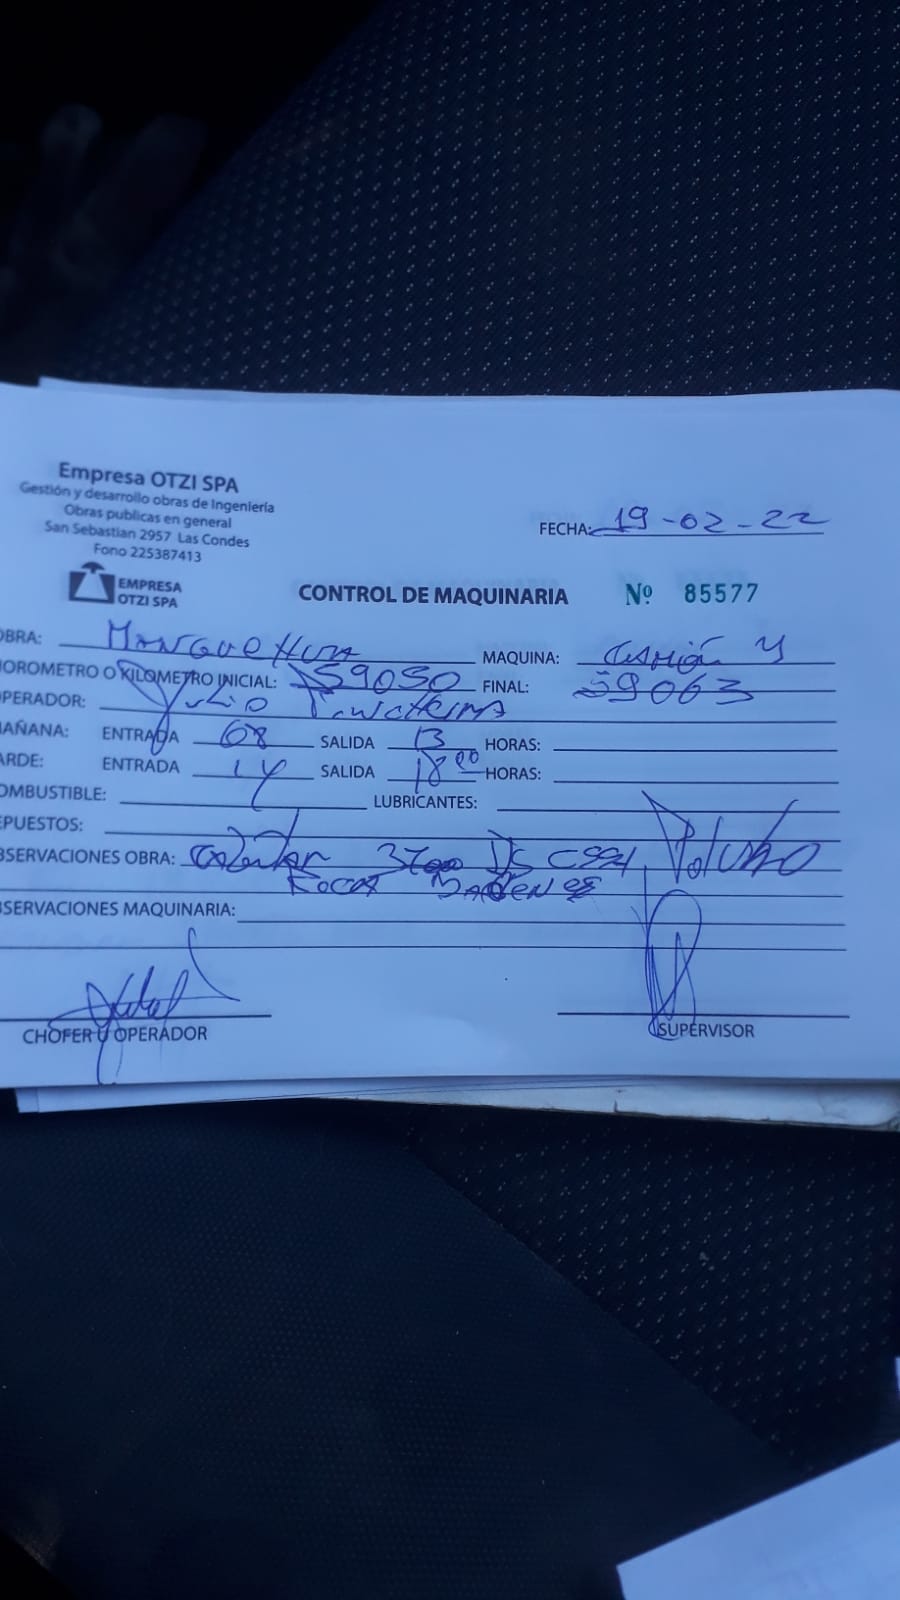 Empresa OTZI SPA
Gestión y desarrollo obras de Ingeniería
Obras publicas en general
San Sebastian 2957 Las Condes
Fono 225387413
EMPRESA
OTZI SPA
FECHA: 19-02-22
CONTROL DE MAQUINARIA Nº 85577
OBRA: MANQUEHUE MAQUINA: Camión 4
HOROMETRO O KILOMETRO INICIAL: 59050 FINAL: 59063
OPERADOR: Julio
MAÑANA: ENTRADA 08 SALIDA 13 HORAS:
TARDE: ENTRADA 14 SALIDA 18 00 HORAS:
COMBUSTIBLE: LUBRICANTES:
REPUESTOS:
OBSERVACIONES OBRA: 3700
OBSERVACIONES MAQUINARIA:
CHOFER U OPERADOR SUPERVISOR